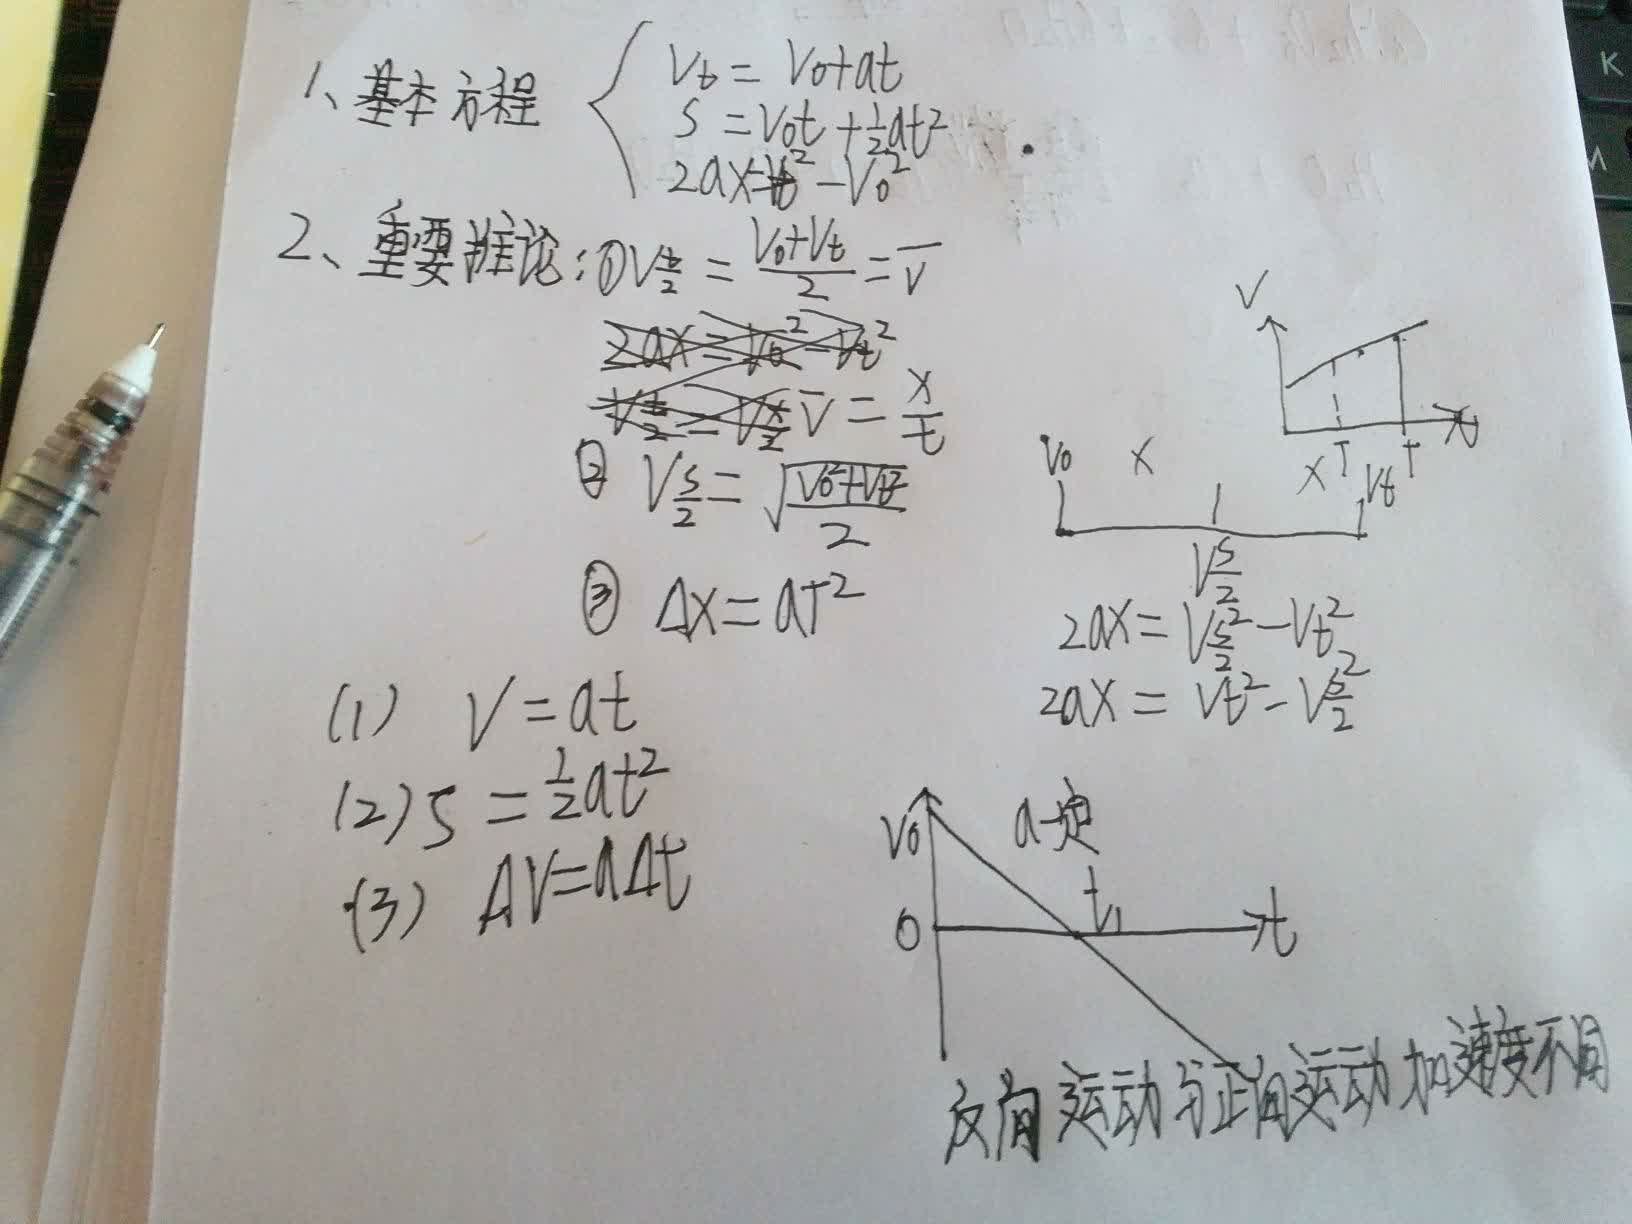 1、基本方程 { Vt = V0+at
S = V0t + 1/2at²
2ax=Vt²-V0²
2、重要推论: ①V t/2 = (V0+Vt)/2 = V̅
2ax = V0² - Vt²
V t/2 = V x/2 V̅ = x/t
② V s/2 = √(V0²+Vt²)/2
③ Δx = aT²
(1) V = at
(2) S = 1/2at²
(3) ΔV=aΔt
V
t
T T
V0 x x Vt
V s/2
2ax = V s/2² - Vt²
2ax = Vt² - V s/2²
V0 a一定
t1
0 t
反向运动与正向运动加速度不同